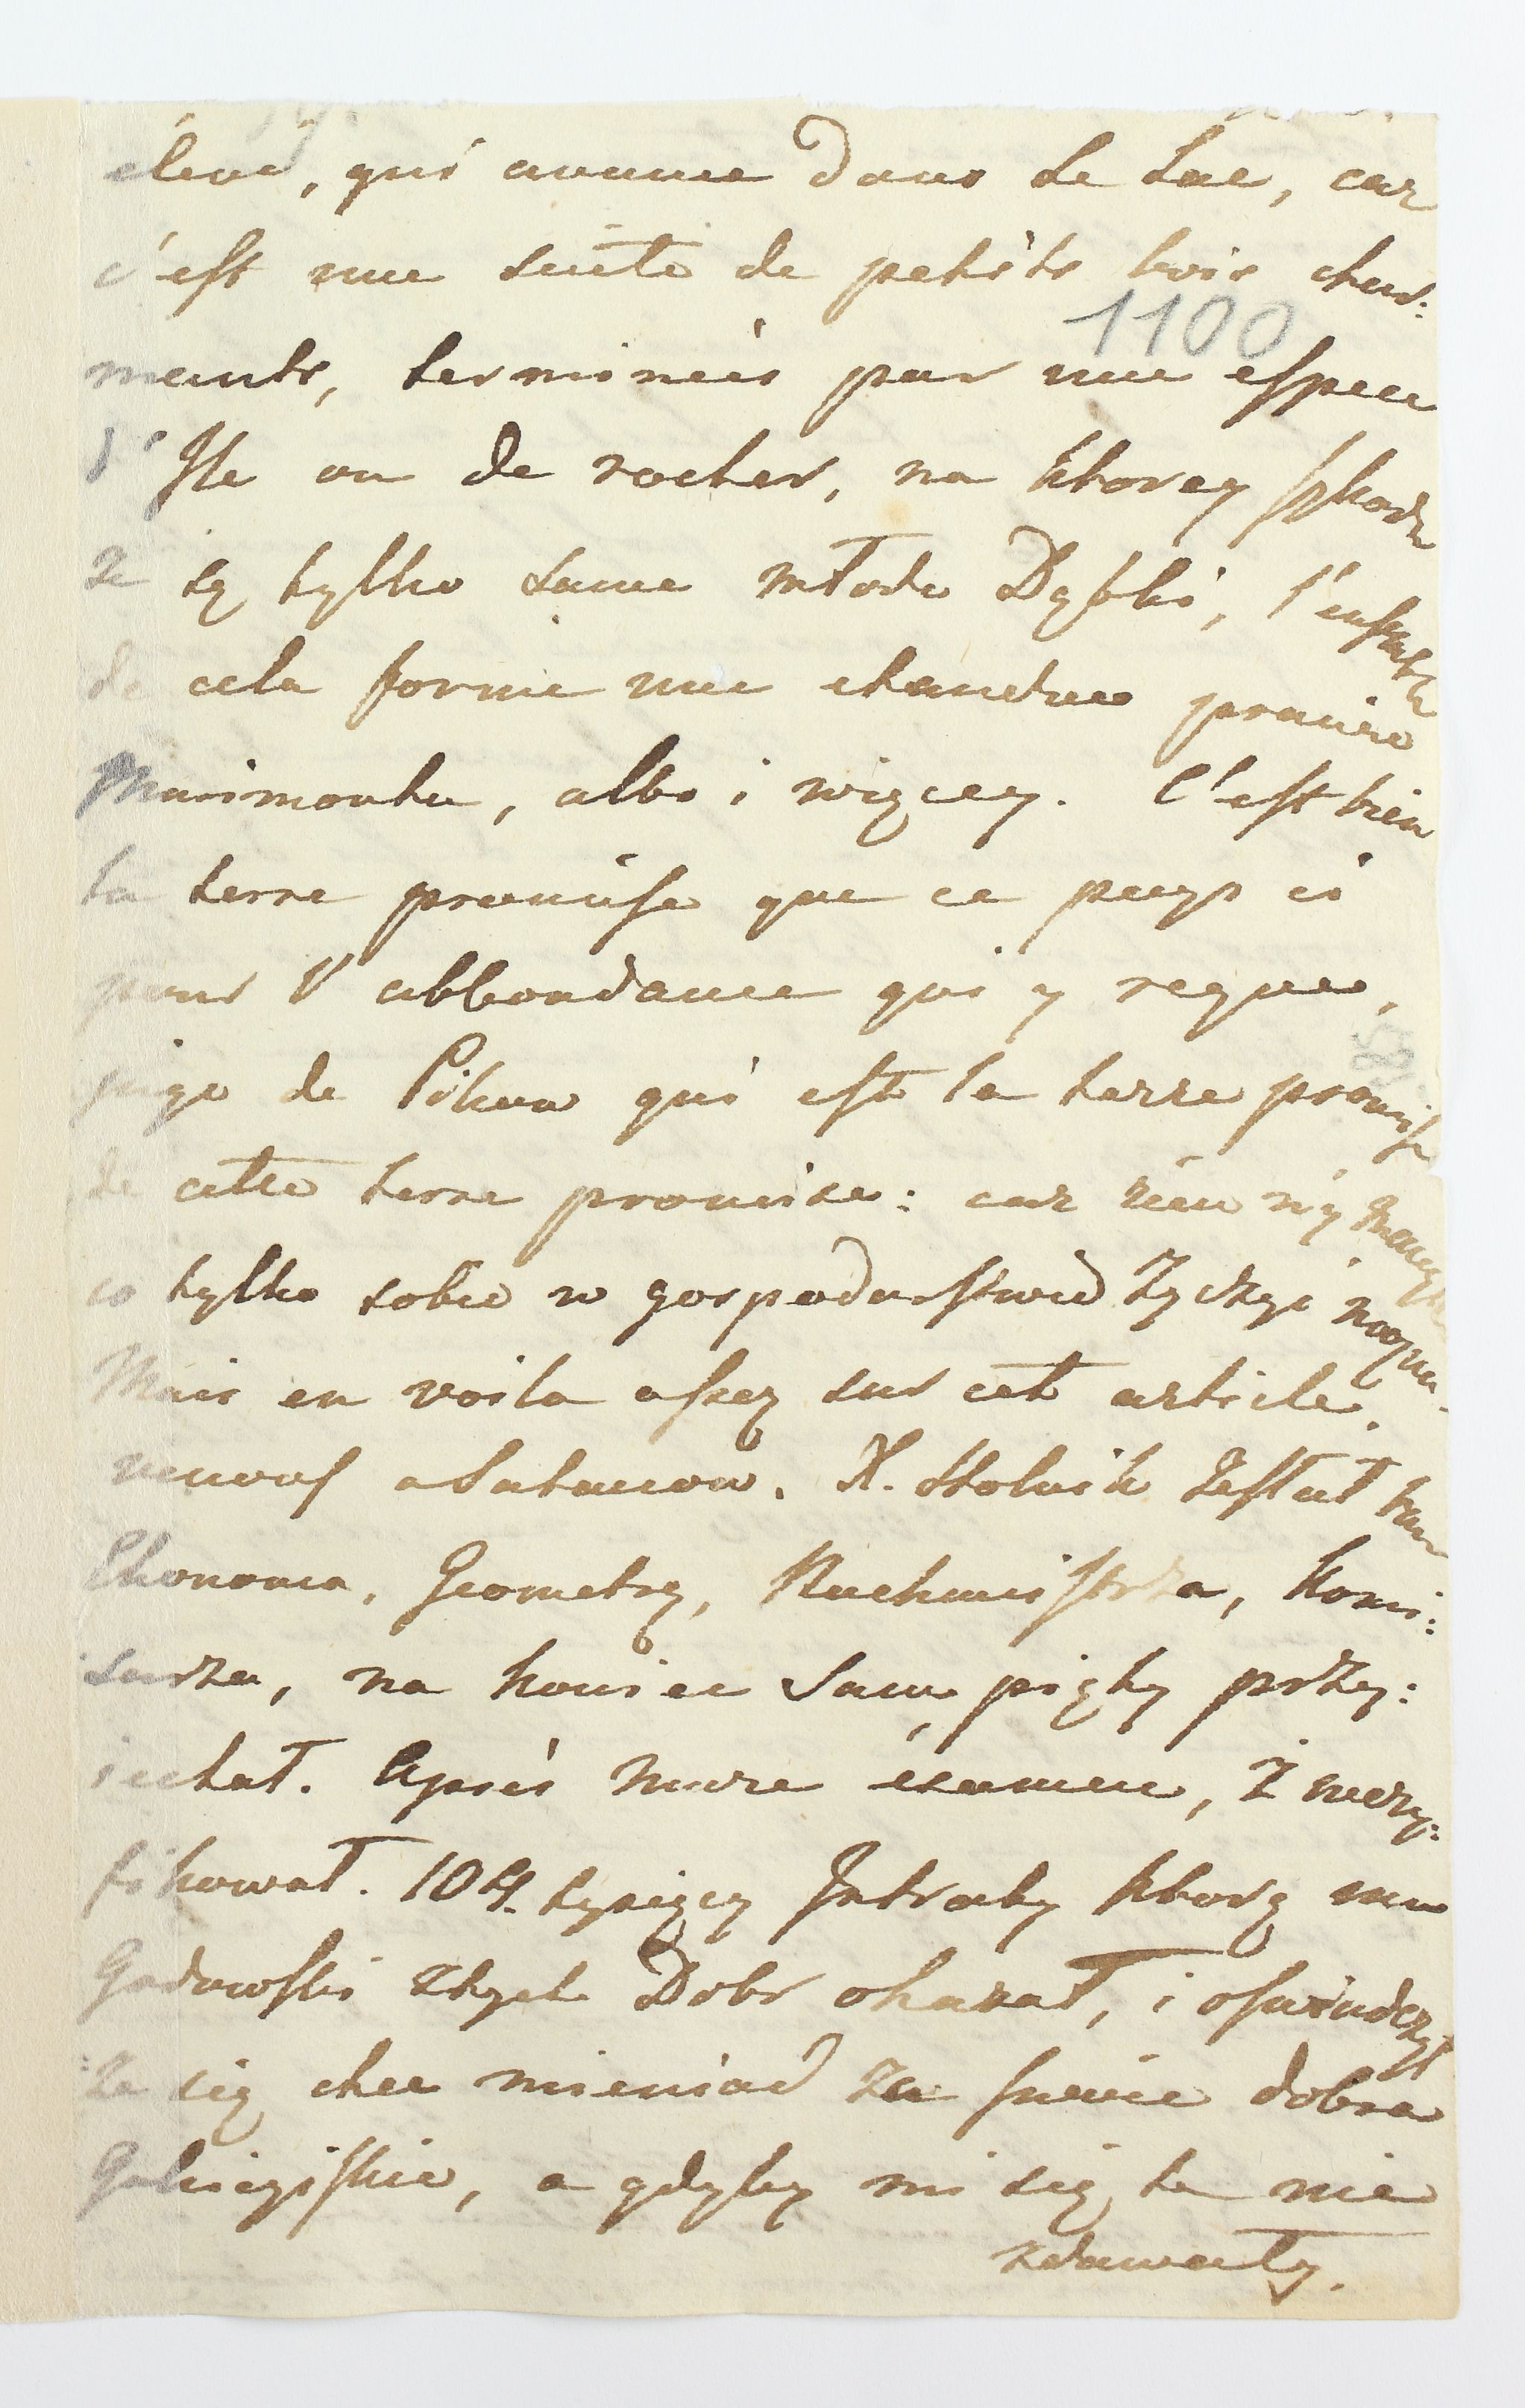 elevé, qui avance dans le Lac, car
c'est une suite de petits bois char:
mants, terminées par une espece
d'Ile ou de rocher, na ktorey znayd
ze są tylko same młode Dębki, l'ensemble
de cela forme une etendue prawie
Marimontu, albo i więcey. C'est bien
la terre promise que ce pays ci
pour l'abbondance qui y regne,
juge de Pikow qui est la terre promise
de cette terre promise: car rien n'y manque
co tylko sobie w gospodarstwie życzyć można.
Mais en voila assez sur cet article.
a Satanow. X. Stolnik zesłał tam
Ekonoma, Geometrę, Rachmistrza, Komi:
sarza, na koniec Sam piąty przy:
iechał. Après mure examen, zwery:
fikował. 104. tysięcy Intraty ktorą mu
Gadowski ztych Dobr okazał, i oswiadczył
że się chce mieniać za swoie dobra
Galicyiskie, a gdyby mi się te nie
zdawały.
1100
58